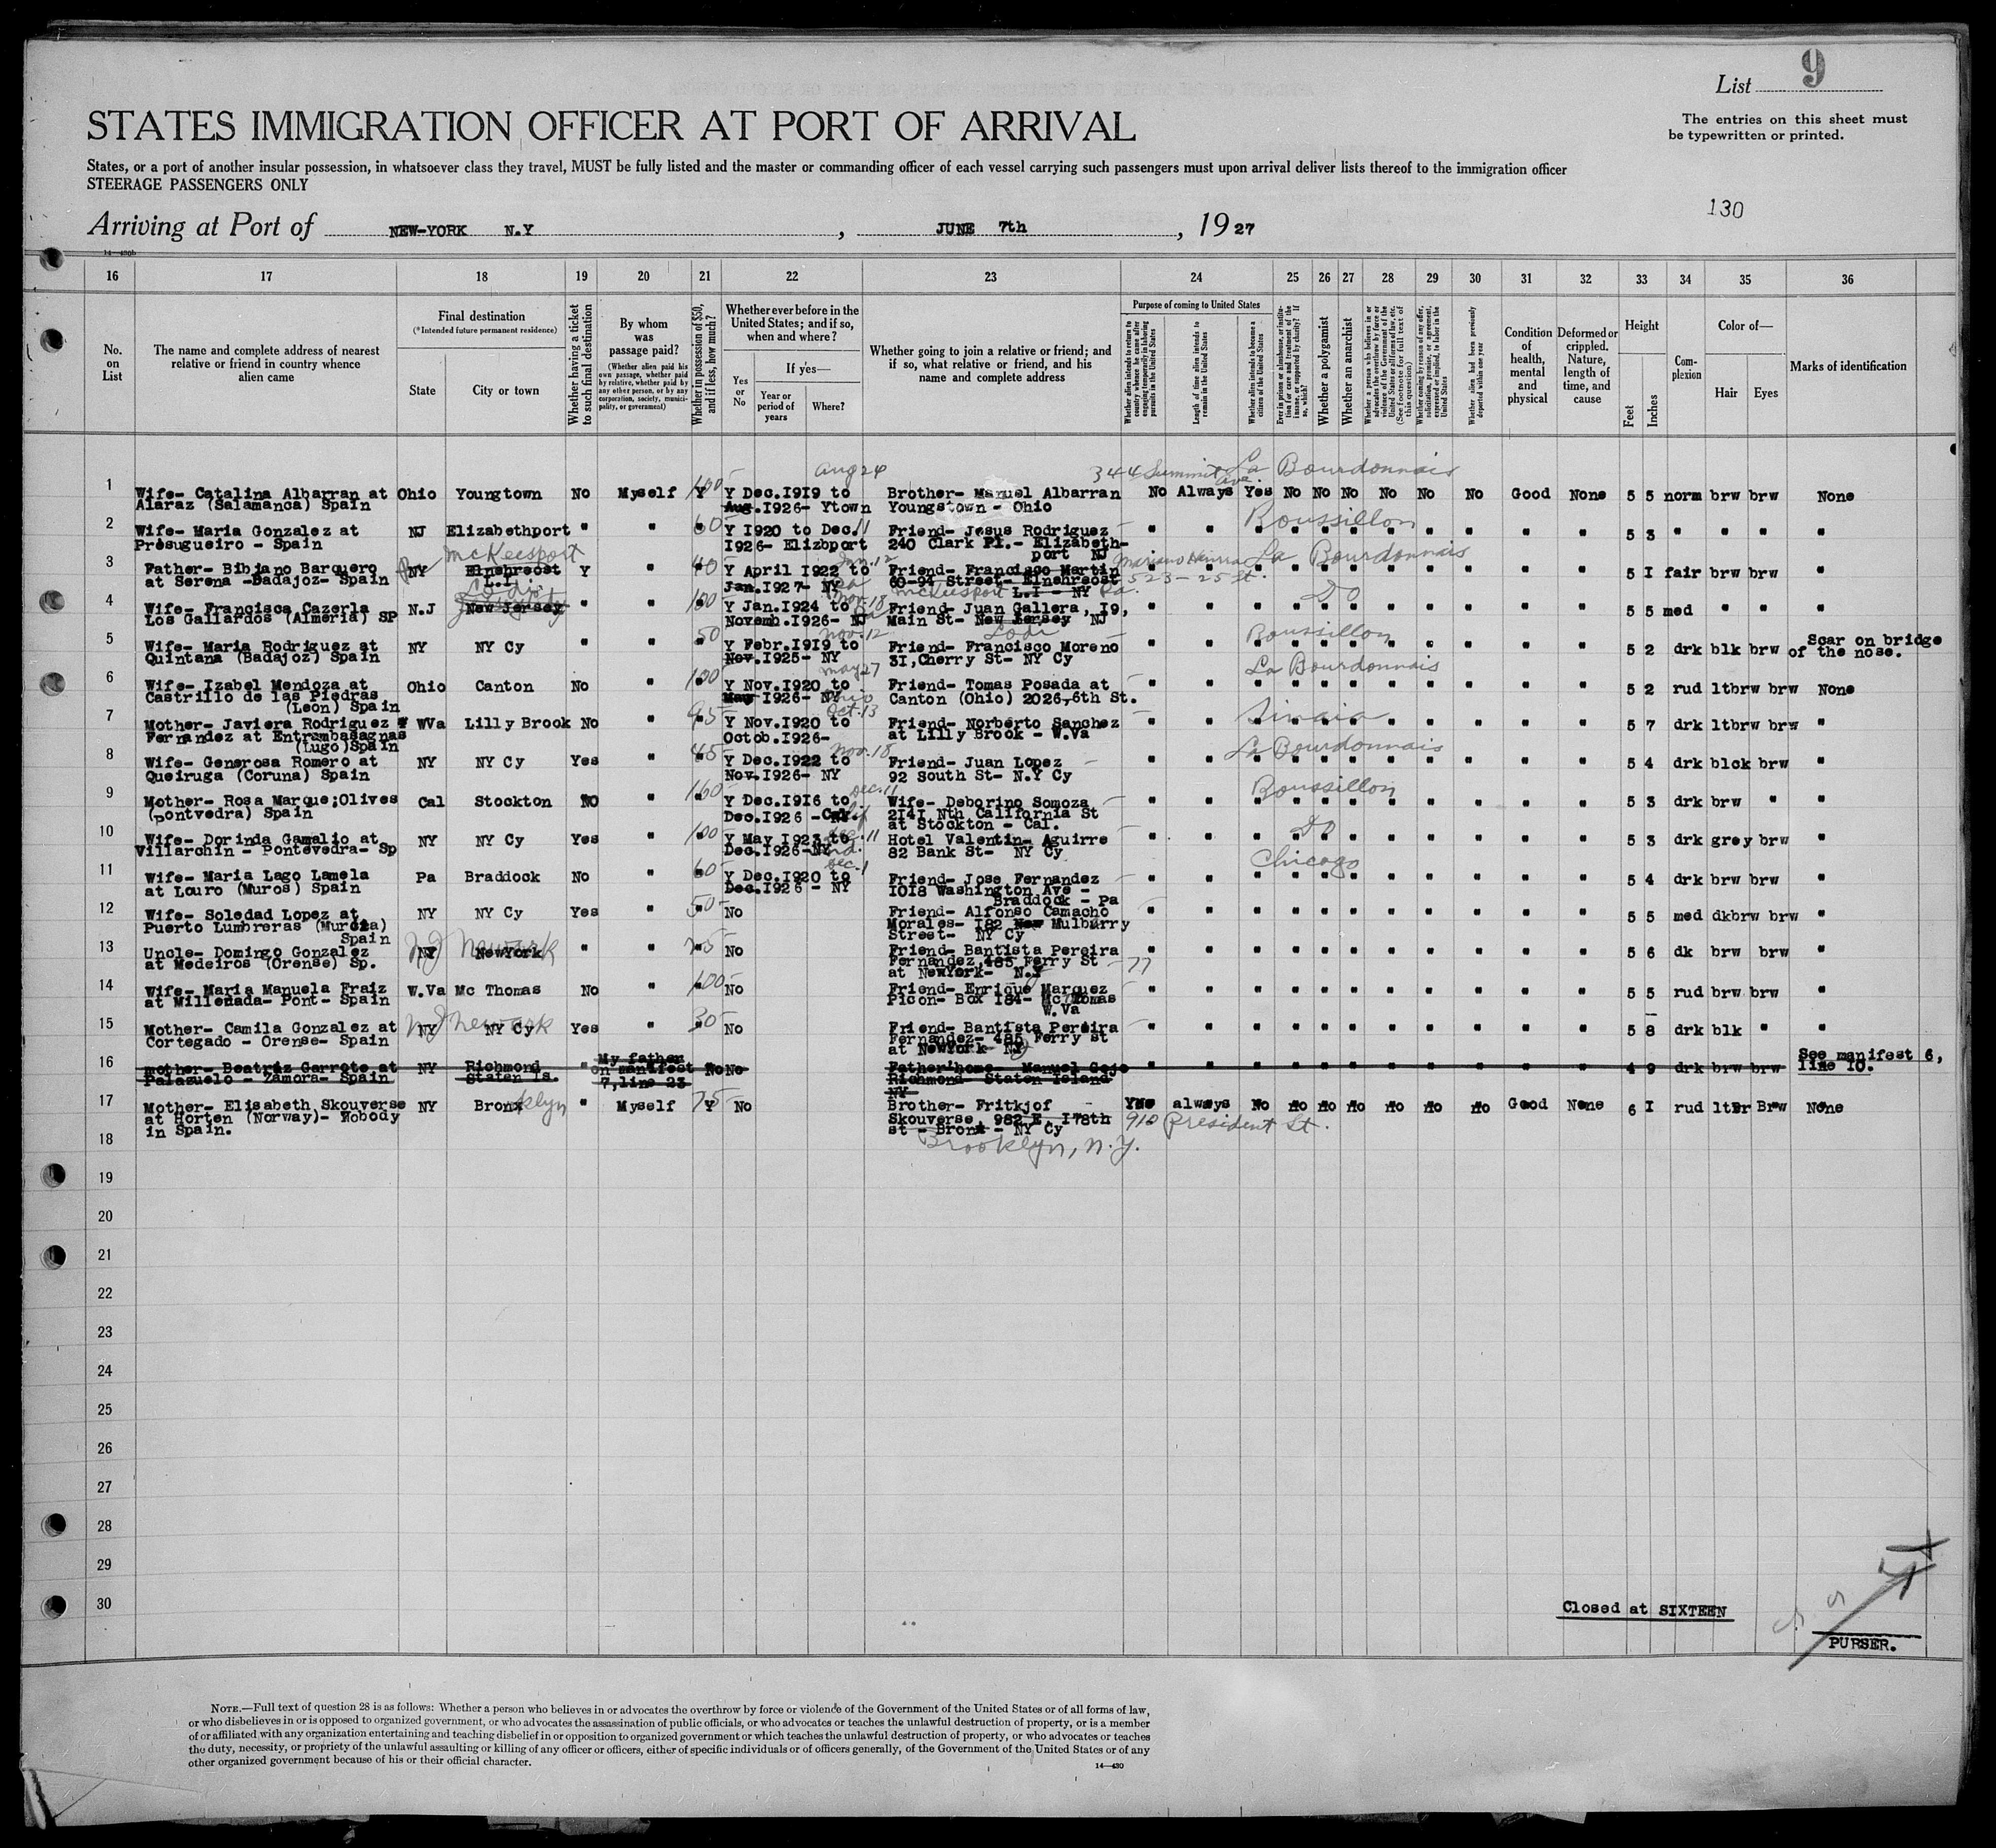 List 9
STATES IMMIGRATION OFFICER AT PORT OF ARRIVAL
The entries on this sheet must
be typewritten or printed.
States, or a port of another insular possession, in whatsoever class they travel, MUST be fully listed and the master or commanding officer of each vessel carrying such passengers must upon arrival deliver lists thereof to the immigration officer
STEERAGE PASSENGERS ONLY
130
Arriving at Port of NEW-YORK N.Y , JUNE 7th , 1927
14—430b
16 17 18 19 20 21 22 23 24 25 26 27 28 29 30 31 32 33 34 35 36
No. on List
The name and complete address of nearest relative or friend in country whence alien came
Final destination
(*Intended future permanent residence)
State
City or town
Whether having a ticket to such final destination
By whom was passage paid?
(Whether alien paid his own passage, whether paid by relative, whether paid by any other person, or by any corporation, society, municipality, or government)
Whether in possession of $50, and if less, how much?
Whether ever before in the United States; and if so, when and where?
Yes or No
If yes—
Year or period of years
Where?
Whether going to join a relative or friend; and if so, what relative or friend, and his name and complete address
Purpose of coming to United States
Whether alien intends to return to country whence he came after engaging temporarily in laboring pursuits in the United States
Length of time alien intends to remain in the United States
Whether alien intends to become a citizen of the United States
Ever in prison or almshouse, or institution for care and treatment of the insane, or supported by charity? If so, which?
Whether a polygamist
Whether an anarchist
Whether a person who believes in or advocates the overthrow by force or violence of the Government of the United States or all forms of law, etc. (See footnote for full text of this question)
Whether coming by reason of any offer, solicitation, promise, or agreement, expressed or implied, to labor in the United States
Whether alien had been previously deported within one year
Condition of health, mental and physical
Deformed or crippled. Nature, length of time, and cause
Height
Feet
Inches
Complexion
Color of—
Hair
Eyes
Marks of identification
Aug 24 344 Summit Ave. La Bourdonnais
1 Wife- Catalina Albarran at Ohio Youngtown No Myself 100 Y Y Dec.I9I9 to Brother- Manuel Albarran No Always Yes No No No No No No Good None 5 5 norm brw brw None
Alaraz (Salamanca) Spain Aug.I926- Ytown Youngstown - Ohio
2 Wife- Maria Gonzalez at NJ Elizabethport " " 60 " Y I920 to Dec. 11 Friend- Jesus Rodriguez Roussillon 5 3 " " " "
Presugueiro - Spain I926- Elizbport 240 Clark Pl.- Elizabeth-
port NJ
McKeesport Jan.12 La Bourdonnais
3 Father- Bibiano Barquero Pa NY Elnehrcost Y " 40 " Y April I922 to Friend- Francisco Martin 5 I fair brw brw "
at Serena -Badajoz- Spain L.I Jan.I927- NY Pa 60-94 Street- Elnehrcost 523-25 St.
McKeesport L.I - NY Pa.
Lodi Nov.18 Do
4 Wife- Francisca Cazerla N.J New Jersey " " 100 " Y Jan.I924 to Friend- Juan Gallera, I9, 5 5 med " " "
Los Gallardos (Almeria) SP Novemb.I926- NJ Main St- New Jersey NJ
Nov.12 Lodi Roussillon
5 Wife- Maria Rodriguez at NY NY Cy " " 50 " Y Febr.I9I9 to Friend- Francisco Moreno 5 2 drk blk brw Scar on bridge
Quintana (Badajoz) Spain Nov.I925- NY 3I,Cherry St- NY Cy of the nose.
May 27 La Bourdonnais
6 Wife- Izabel Mendoza at Ohio Canton No " 100 " Y Nov.I920 to Friend- Tomas Posada at 5 2 rud ltbrw brw None
Castrillo de las Piedras May I926- NY Ohio Canton (Ohio) 2026,6th St.
(Leon) Spain
Oct.13 Sinaia
7 Mother- Javiera Rodriguez WVa Lilly Brook No " 95 " Y Nov.I920 to Friend- Norberto Sanchez 5 7 drk ltbrw brw "
Fernandez at Entrambasagnas Octob.I926- at Lilly Brook - W.Va
(Lugo)Spain
Nov.18 La Bourdonnais
8 Wife- Generosa Romero at NY NY Cy Yes " 45 " Y Dec.I922 to Friend- Juan Lopez 5 4 drk blck brw "
Queiruga (Coruna) Spain Nov.I926- NY 92 South St- N.Y Cy
Dec.11 Roussillon
9 Mother- Rosa Marque;Olives Cal Stockton NO " 160 " Y Dec.I9I6 to Wife- Deborino Somoza 5 3 drk brw " "
(pontvedra) Spain Dec.I926 - Calif 2I4I Nth California St
at Stockton - Cal.
Dec.11 Do
10 Wife- Dorinda Gamalio at NY NY Cy Yes " 100 " Y May I923 to Hotel Valentin- Aguirre 5 3 drk grey brw "
Villarchin - Pontevedra- Sp Dec.I926-NY 82 Bank St- NY Cy
Dec.1 Chicago
11 Wife- Maria Lago Lamela Pa Braddock No " 60 " Y Dec.I920 to Friend- Jose Fernandez 5 4 drk brw brw "
at Louro (Muros) Spain Dec.I926 - NY I0I8 Washington Ave -
Braddock - Pa
12 Wife- Soledad Lopez at NY NY Cy Yes " 50 " No Friend- Alfonso Camacho 5 5 med dkbrw brw "
Puerto Lumbreras (Murcia) Morales- I82 New Mulburry
Spain Street- NY Cy
13 Uncle- Domingo Gonzalez NJ NY Newark NewYork " " 25 " No Friend- Bantista Pereira 5 6 dk brw brw "
at Medeiros (Orense) Sp. Fernandez,485 Ferry St - 77
at NewYork- N.Y
14 Wife- Maria Manuela Fraiz W.Va Mc Thomas No " 100 " No Friend- Enrique Marquez 5 5 rud brw brw "
at Millenada- Pont- Spain Picon- Box I84- Mc Thomas
W.Va
15 Mother- Camila Gonzalez at NJ NY Newark NY Cy Yes " 30 " No Friend- Bantista Pereira 5 8 drk blk " "
Cortegado - Orense- Spain Fernandez- 485 Ferry st
at NewYork NY
16 mother- Beatriz Garrote at NY Richmond " My father No No Father'home- Manuel Gejo 4 9 drk brw brw See manifest 6,
Palazuelo - Zamora- Spain Staten Is. on manifest Richmond- Staten Island line I0.
7,line 23 NY
17 Mother- Elisabeth Skouverse NY Bronx oklyn " Myself 75 Y No Brother- Fritkjof Yes always No No No No No No No Good None 6 I rud ltBr Brw None
at Horten (Norway)- Nobody Skouverse, 982 E. I78th 910 President St.
in Spain. st - Bronx - NY Cy
18 Brooklyn, N.Y.
19
20
21
22
23
24
25
26
27
28
29
30
Closed at SIXTEEN
PURSER.
NOTE.—Full text of question 28 is as follows: Whether a person who believes in or advocates the overthrow by force or violence of the Government of the United States or of all forms of law,
or who disbelieves in or is opposed to organized government, or who advocates the assassination of public officials, or who advocates or teaches the unlawful destruction of property, or is a member
of or affiliated with any organization entertaining and teaching disbelief in or opposition to organized government or which teaches the unlawful destruction of property, or who advocates or teaches
the duty, necessity, or propriety of the unlawful assaulting or killing of any officer or officers, either of specific individuals or of officers generally, of the Government of the United States or of any
other organized government because of his or their official character.
14—430